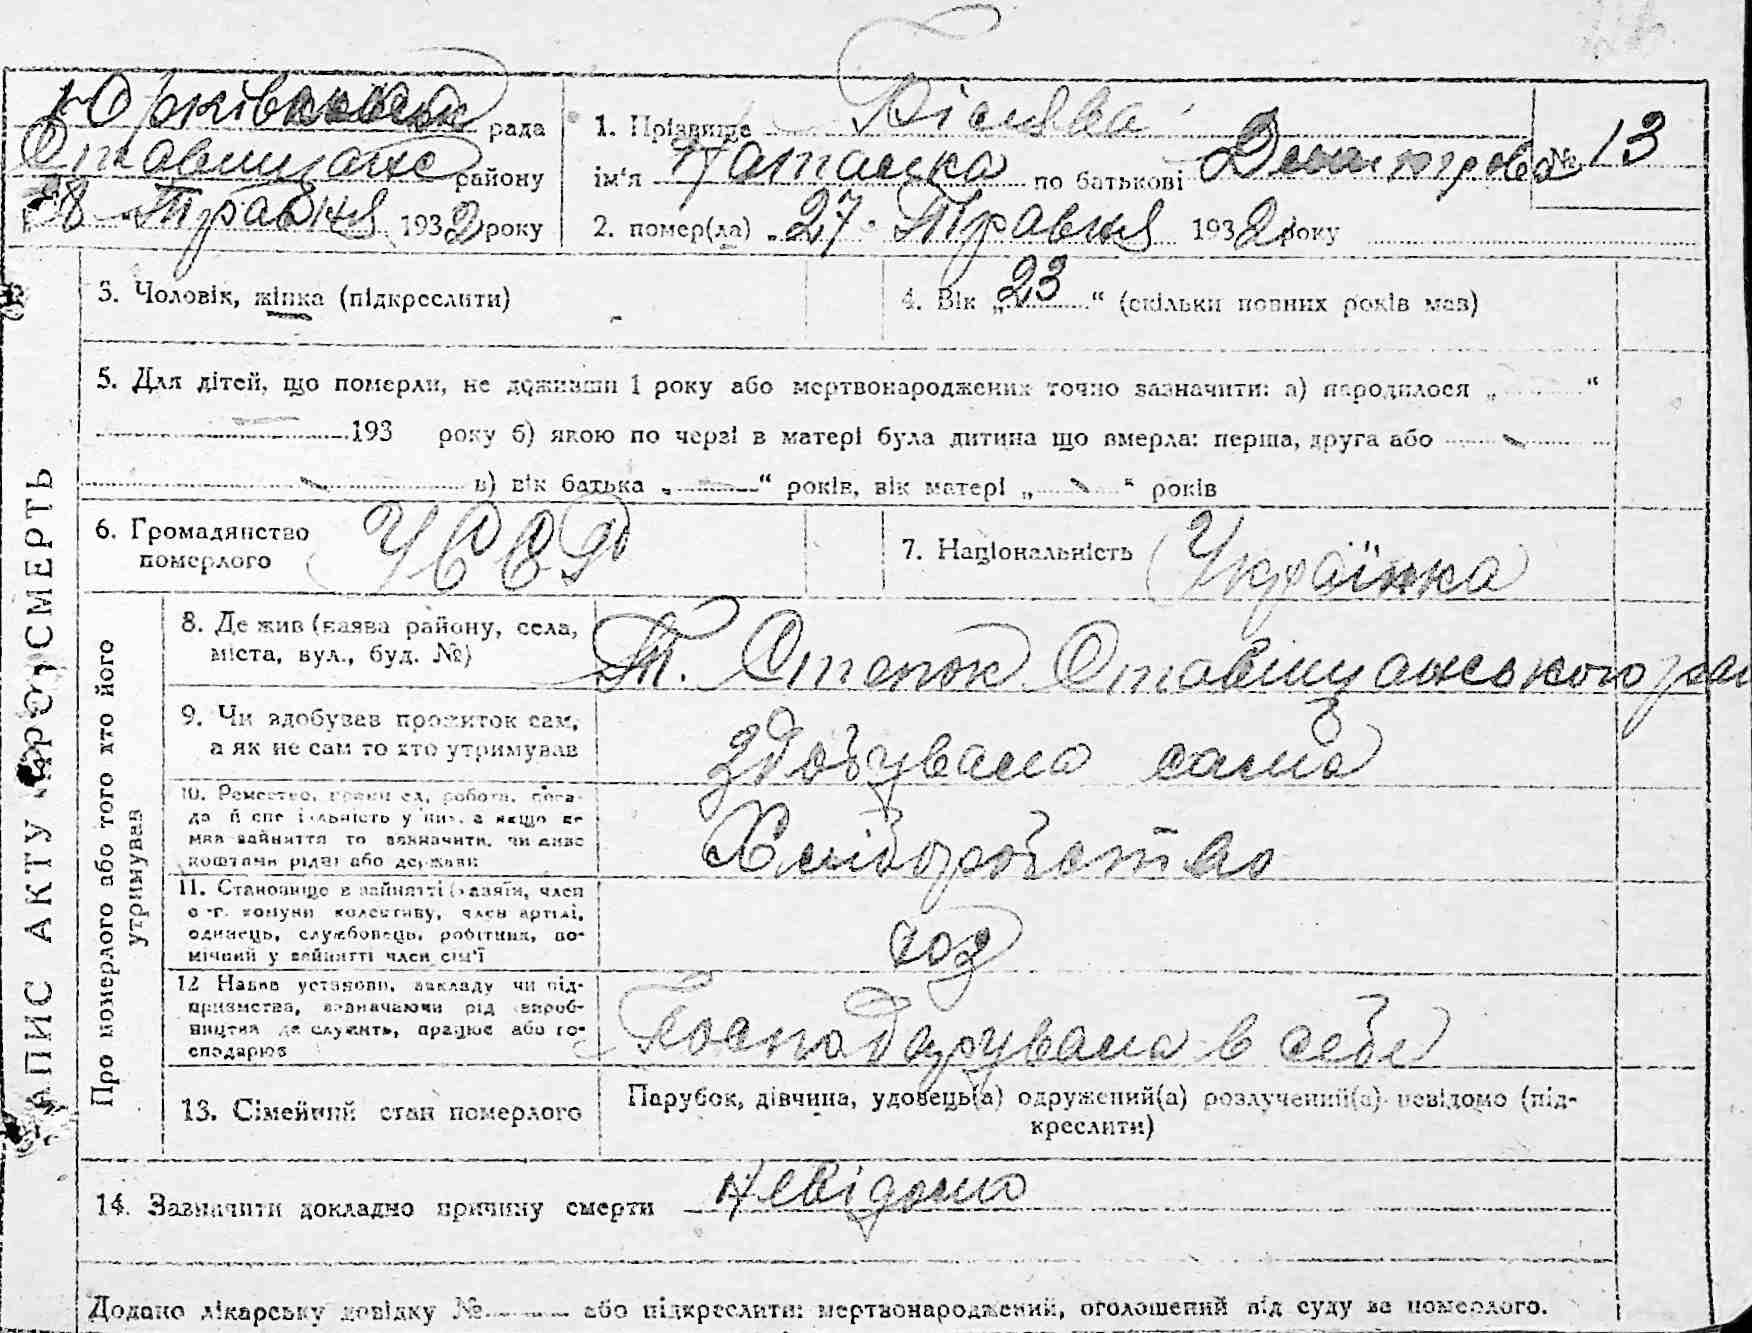 Юрківська рада
Ставищанс району
28 Травня 1932 року
1. Прізвище
ім'я Наталка по батькові Демитрова № 13
2. помер(ла) „27" Травня 1932 року
3. Чоловік, жінка (підкреслити)
4. Вік „23“ (скільки повних років мав)
5. Для дітей, що померли, не доживши 1 року або мертвонароджених точно зазначити: а) народилося „ “
193 року б) якою по черзі в матері була дитина що вмерла: перша, друга або
в) вік батька „ “ років, вік матері „ “ років
6. Громадянство померлого УССР
7. Національність Українка
ЗАПИС АКТУ ПРО СМЕРТЬ
Про померлого або того хто його утримував
8. Де жив (назва району, села,
міста, вул., буд. №)
Т. Степок Ставищанського рай
9. Чи здобував прожиток сам,
а як не сам то хто утримував
здобувала сама
10. Ремество, промисел, робота, поса-
да й спеціяльність у них, а якщо не
мав зайняття то зазначити, чи жив
коштами рідні або держави
Хліборобство
11. Становище в зайнятті (хазяїн, член
с.-г. комуни колективу, член артілі,
одинець, службовець, робітник, по-
мічний у зайнятті член сім'ї
12 Назва установи, закладу чи під-
приємства, зазначаючи рід вироб-
ництва де служить, працює або го-
сподарює
Господарувала в себе
13. Сімейний стан померлого
Парубок, дівчина, удовець(а) одружений(а) розлучений(а) невідомо (під-
креслити)
14. Зазначити докладно причину смерти невідомо
Додано лікарську довідку № або підкреслити: мертвонароджений, оголошений від суду за померлого.